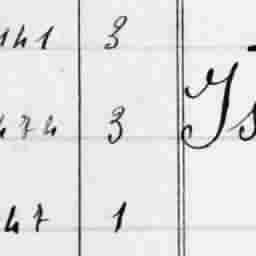 141 3
474 3 Is
47 1